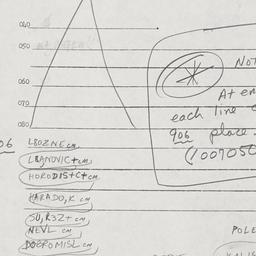 040
050
060
070
080
NOT
At en
each line
906 place.
(1007050
06
LBOZNE cm
LBANOVIC+cm,
HORODIS+C+cm
HARADO,K cm
SU,R3Z+ cm
NEVL cm
DOBROMISL cm
POLE